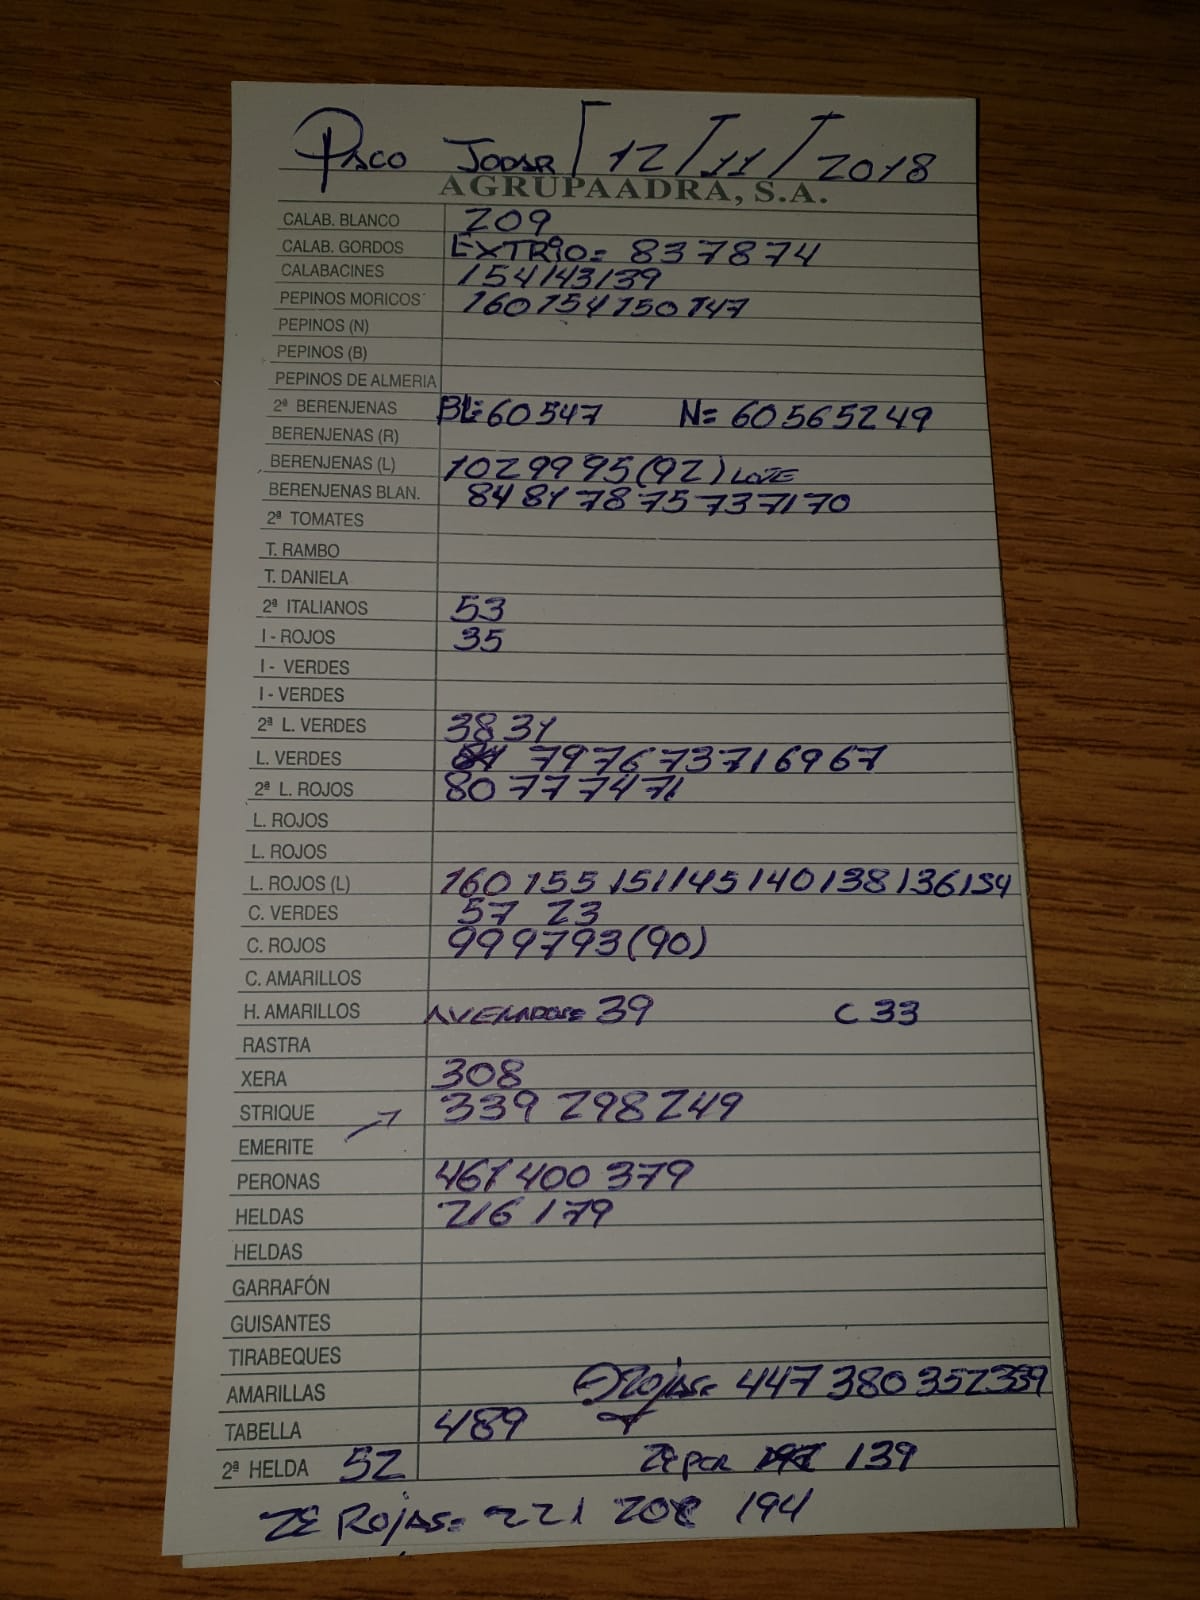 Paco Jodar / 12 / 11 / 2018
AGRUPAADRA, S.A.
CALAB. BLANCO 209
CALAB. GORDOS EXTRIO= 83 78 74
CALABACINES 154 143 139
PEPINOS MORICOS 160 154 150 147
PEPINOS (N)
PEPINOS (B)
PEPINOS DE ALMERIA
2ª BERENJENAS BL= 60 54 7 N= 60 56 52 49
BERENJENAS (R)
BERENJENAS (L) 102 99 95 (92) LOTE
BERENJENAS BLAN. 84 81 78 75 73 71 70
2ª TOMATES
T. RAMBO
T. DANIELA
2ª ITALIANOS 53
I - ROJOS 35
I - VERDES
I - VERDES
2ª L. VERDES 38 31
L. VERDES 79 76 73 71 69 67
2ª L. ROJOS 80 77 74 71
L. ROJOS
L. ROJOS
L. ROJOS (L) 160 155 151 145 140 138 136 134
C. VERDES 57 23
C. ROJOS 99 97 93 (90)
C. AMARILLOS
H. AMARILLOS 39 C 33
RASTRA
XERA 308
STRIQUE 339 298 249
EMERITE
PERONAS 461 400 379
HELDAS 216 179
HELDAS
GARRAFÓN
GUISANTES
TIRABEQUES
AMARILLAS ROJAS= 447 380 352 339
TABELLA 489
2ª HELDA 52 2ª PER 139
2ª ROJAS= 221 208 194